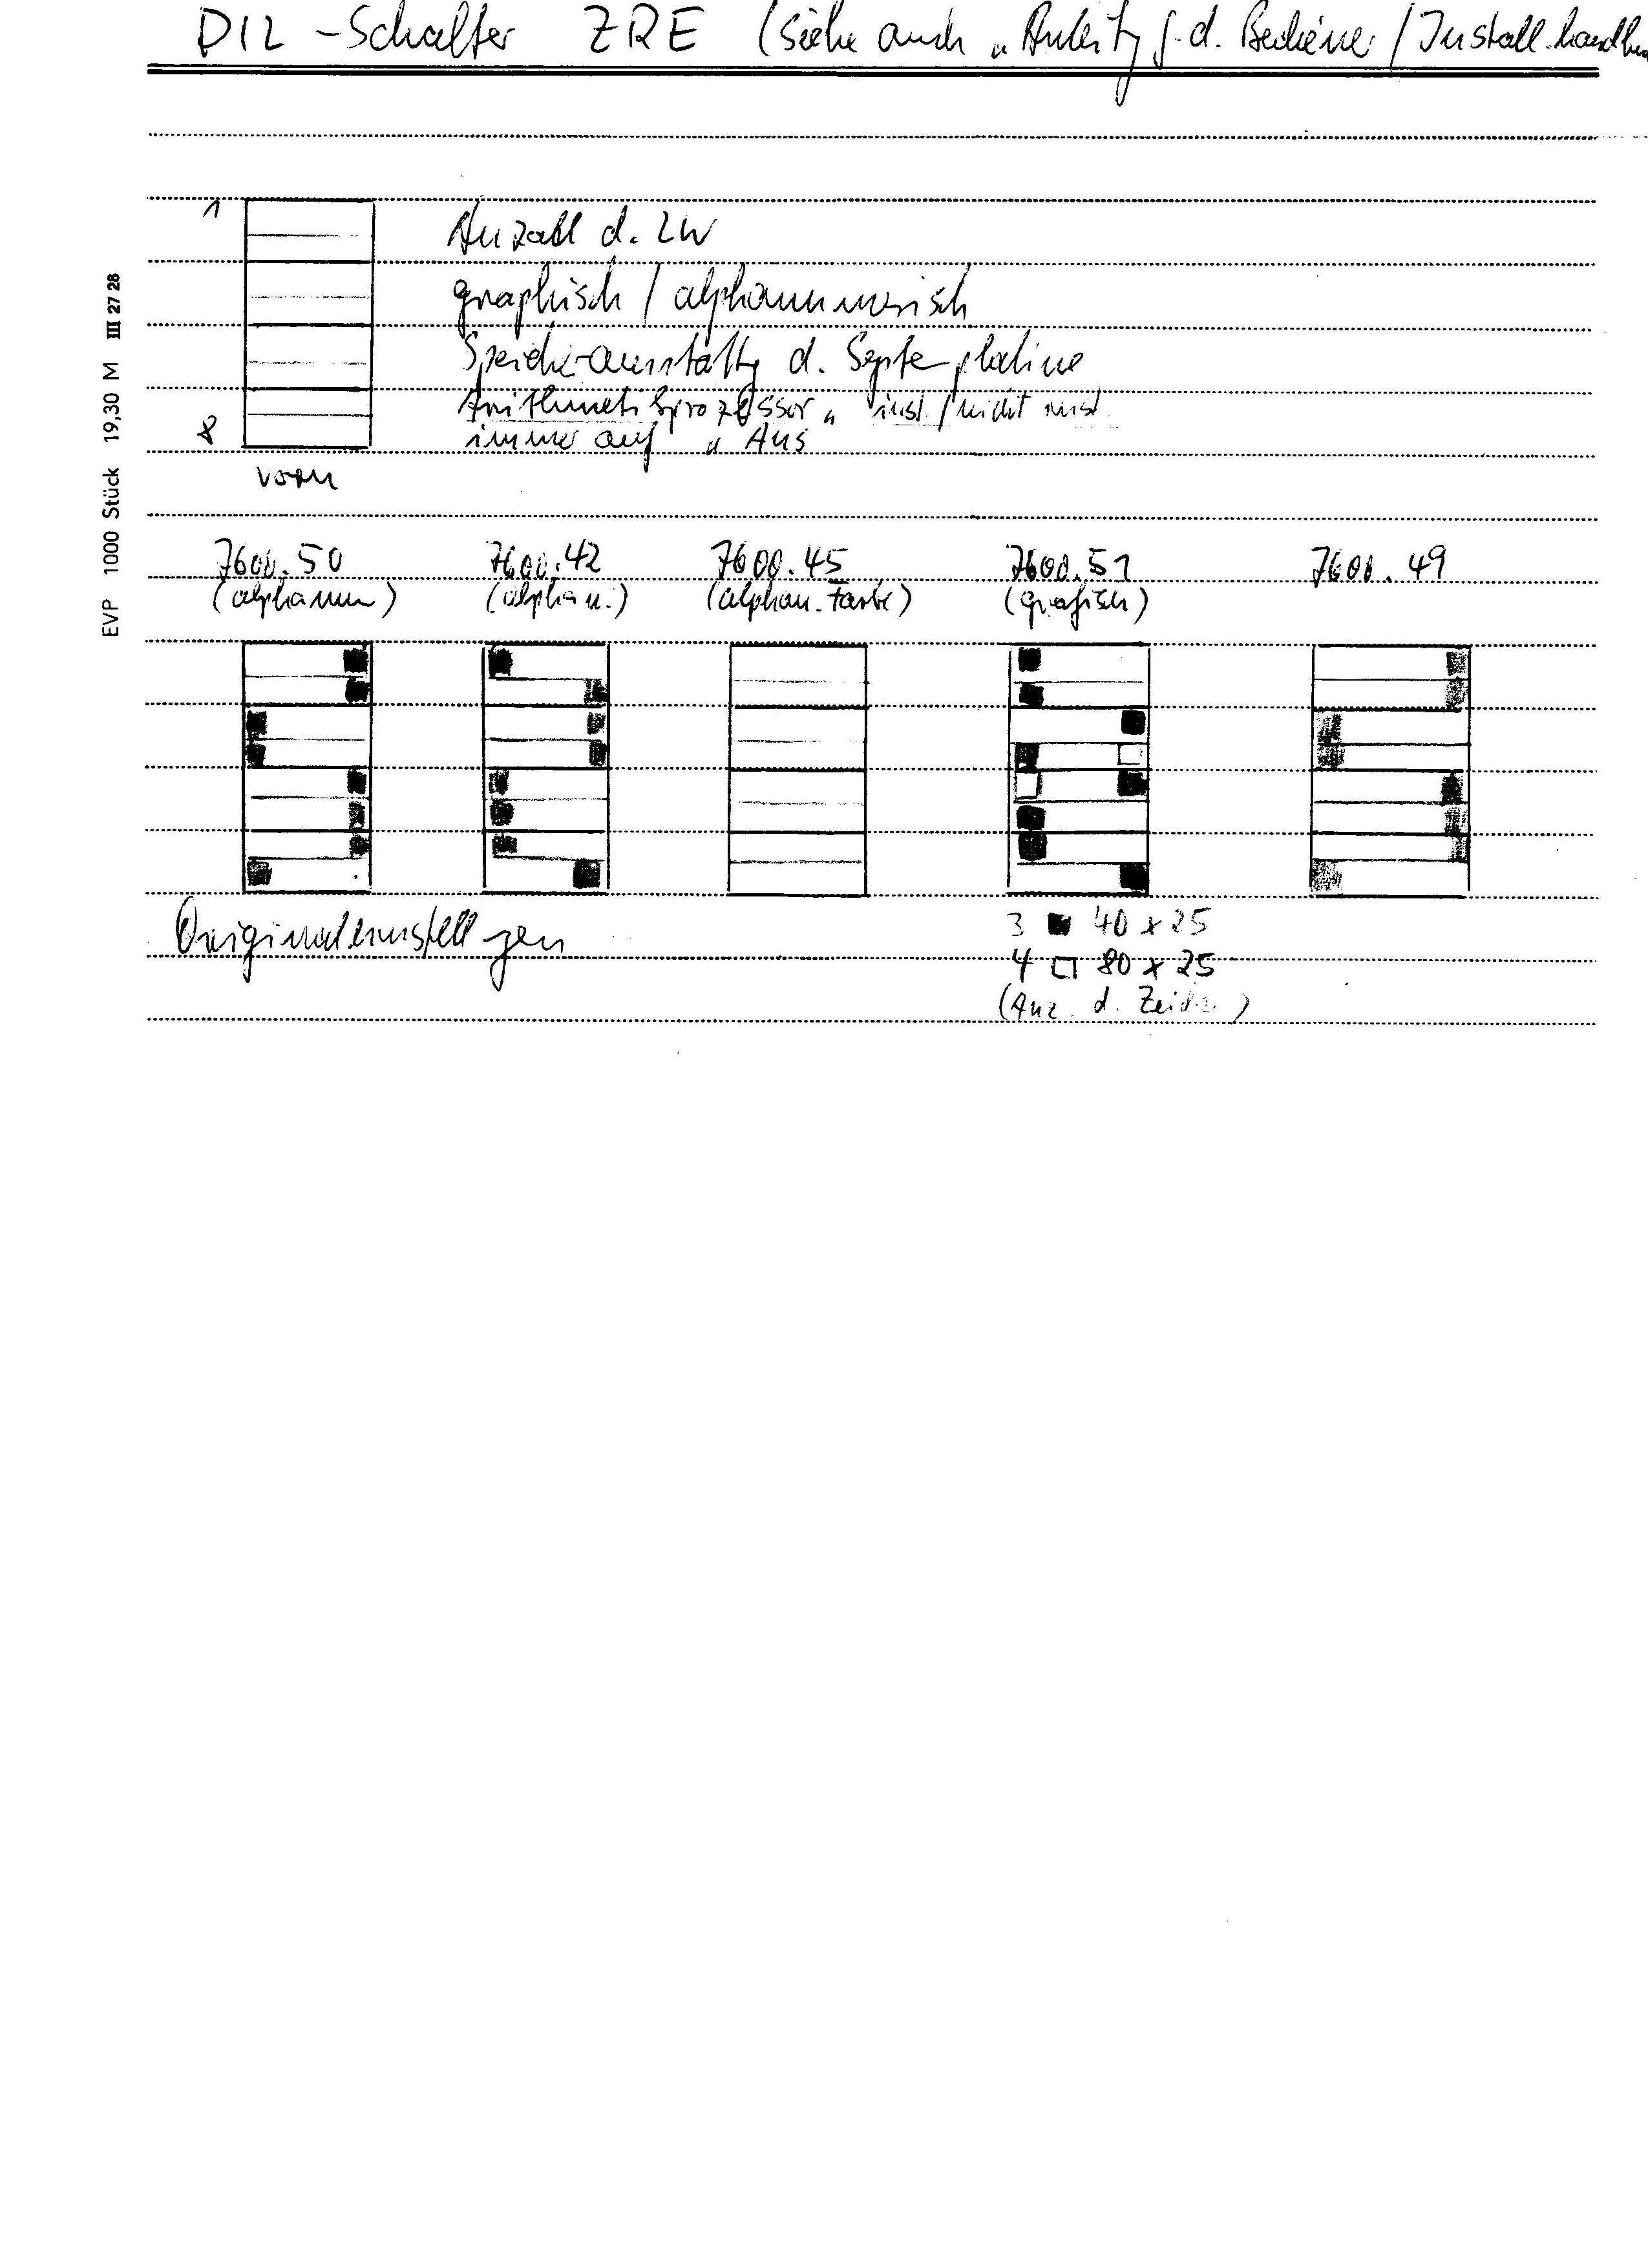 DIL - Schalter ZRE (siehe auch „ Anleitg f. d. Bediener / Install.handbu
1
Anzahl d. LW
graphisch / alphanummerisch
Speicherausstattg d. Systemplatine
Arithmetikprozessor „ inst. / nicht inst.
8
immer auf „ Aus
vorn
EVP 1000 Stück 19,30 M III 27 28
7600.50 7600.42 7600.45 7600.51 7600.49
(alphanum) (alphan.) (alphan. Farbe) (grafisch)
Originaleinstellgen
3 ■ 40 x 25
4 □ 80 x 25
(Anz. d. Zeichen)